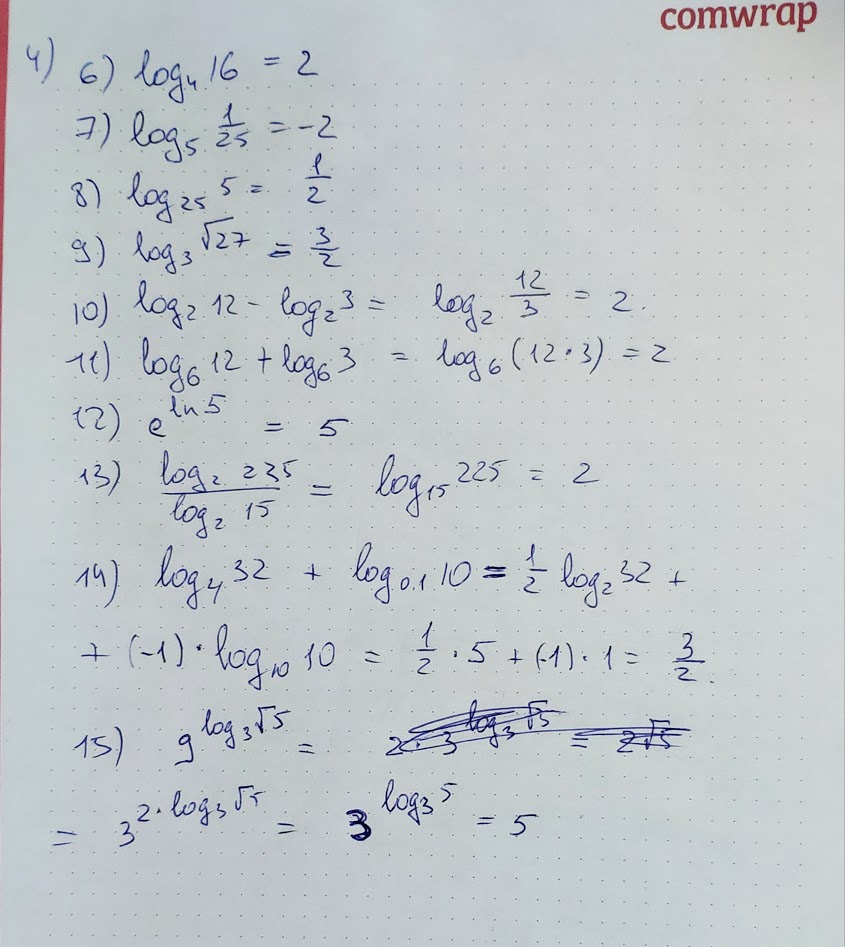 comwrap
4) 6) log₄ 16 = 2
7) log₅ 1/25 = -2
8) log₂₅ 5 = 1/2
9) log₃ √27 = 3/2
10) log₂ 12 - log₂ 3 = log₂ 12/3 = 2.
11) log₆ 12 + log₆ 3 = log₆ (12·3) = 2
12) e^(ln 5) = 5
13) (log₂ 225)/(log₂ 15) = log₁₅ 225 = 2
14) log₄ 32 + log₀.₁ 10 = 1/2 log₂ 32 +
+ (-1)·log₁₀ 10 = 1/2 · 5 + (-1)·1 = 3/2.
15) 9^(log₃ √5) = 2·3^(log₃ √5) = 2√5
= 3^(2·log₃ √5) = 3^(log₃ 5) = 5